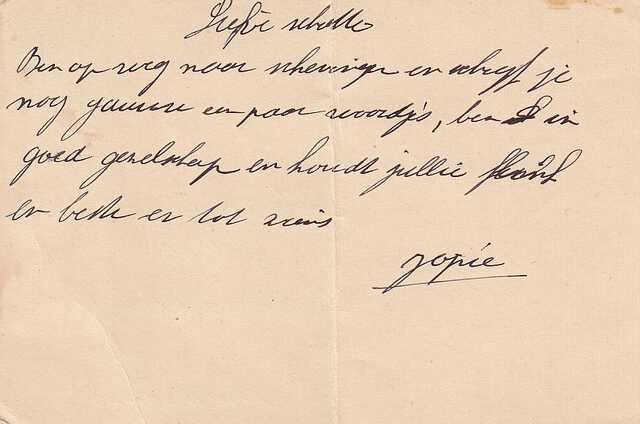 Liefste schatte
Ben op weg naar schevingen en schrijf je
nog gauw een paar woordjs, ben in
goed gezelschap en houdt jullie flink
en beste er tot ziens
Jopie